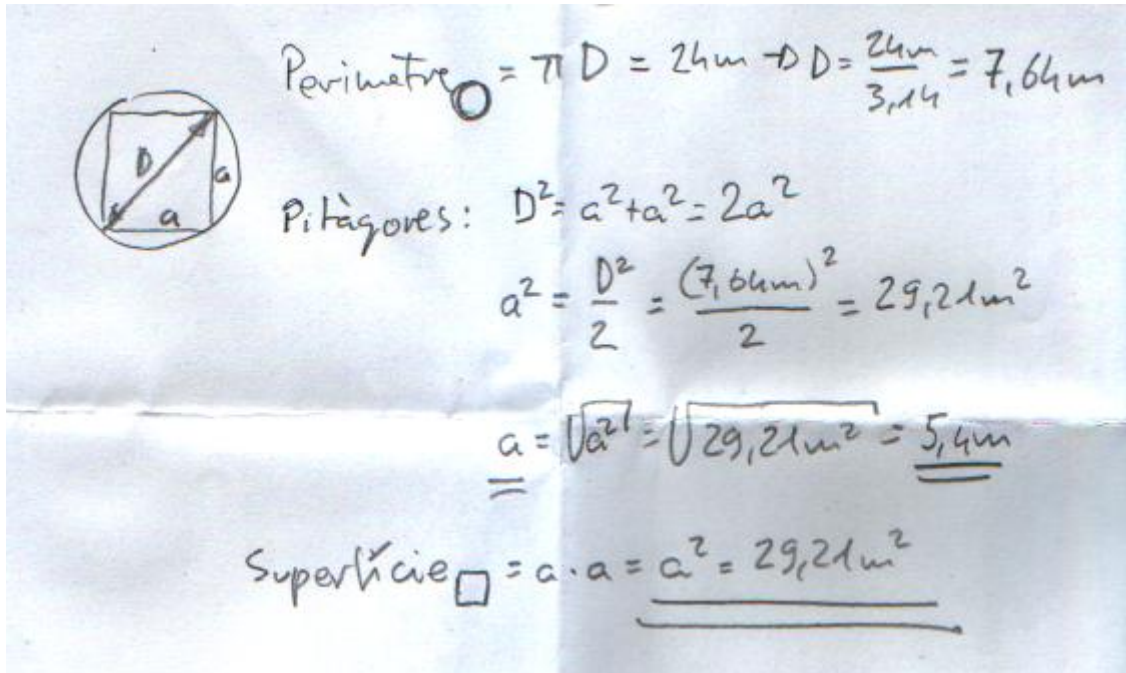 Perimetre = π D = 24m → D = 24m / 3,14 = 7,64m
D
a
a
Pitàgores: D² = a² + a² = 2a²
a² = D² / 2 = (7,64m)² / 2 = 29,21m²
a = √a² = √29,21m² = 5,4m
Superfície □ = a · a = a² = 29,21m²